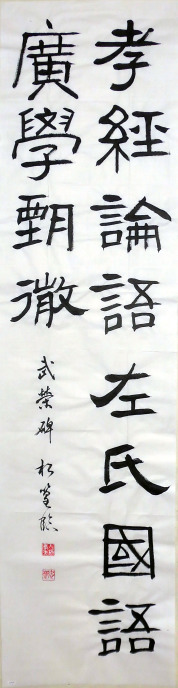 孝經論語左氏國語
廣學甄徹
武榮碑 松篁臨